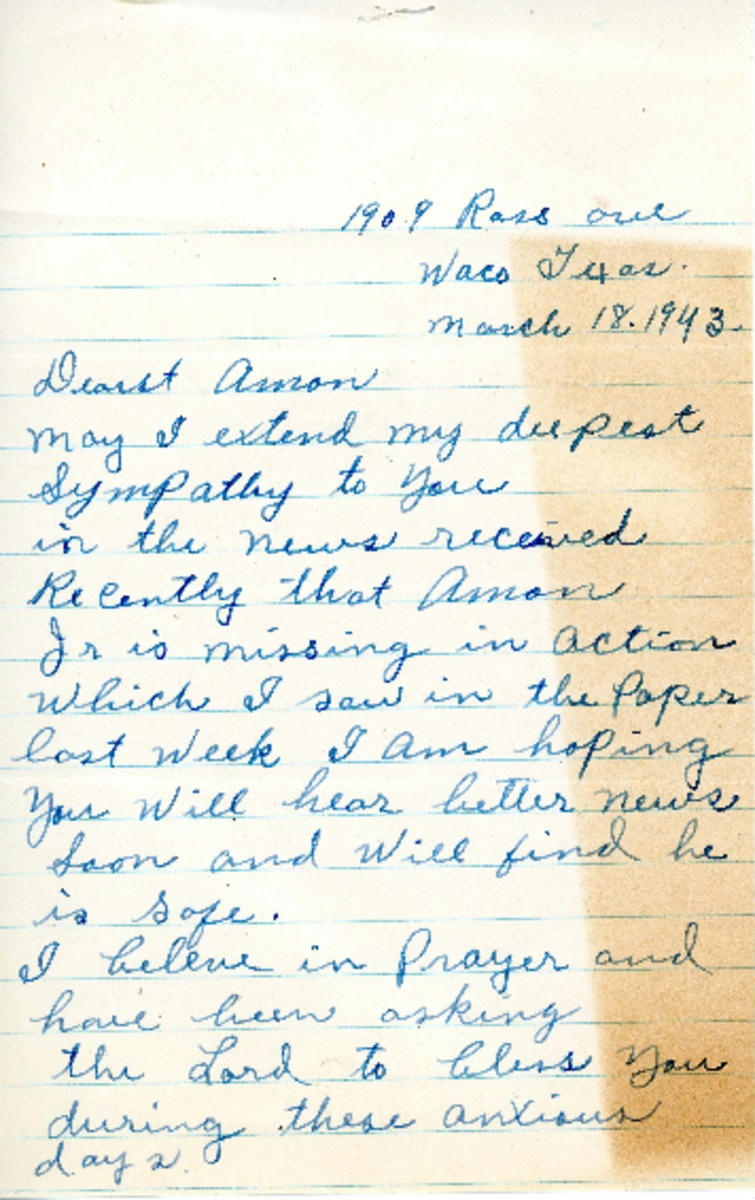 1909 Ross ave
Waco Texas.
March 18. 1943
Dearst Amon
May I extend my deepest
Sympathy to You
in the news received
Recently that Amon
Jr is missing in action
which I saw in the Paper
last week I Am hoping
You Will hear better news
Soon and Will find he
is safe.
I beleve in Prayer and
have been asking
the Lord to bless You
during these anxious
days.